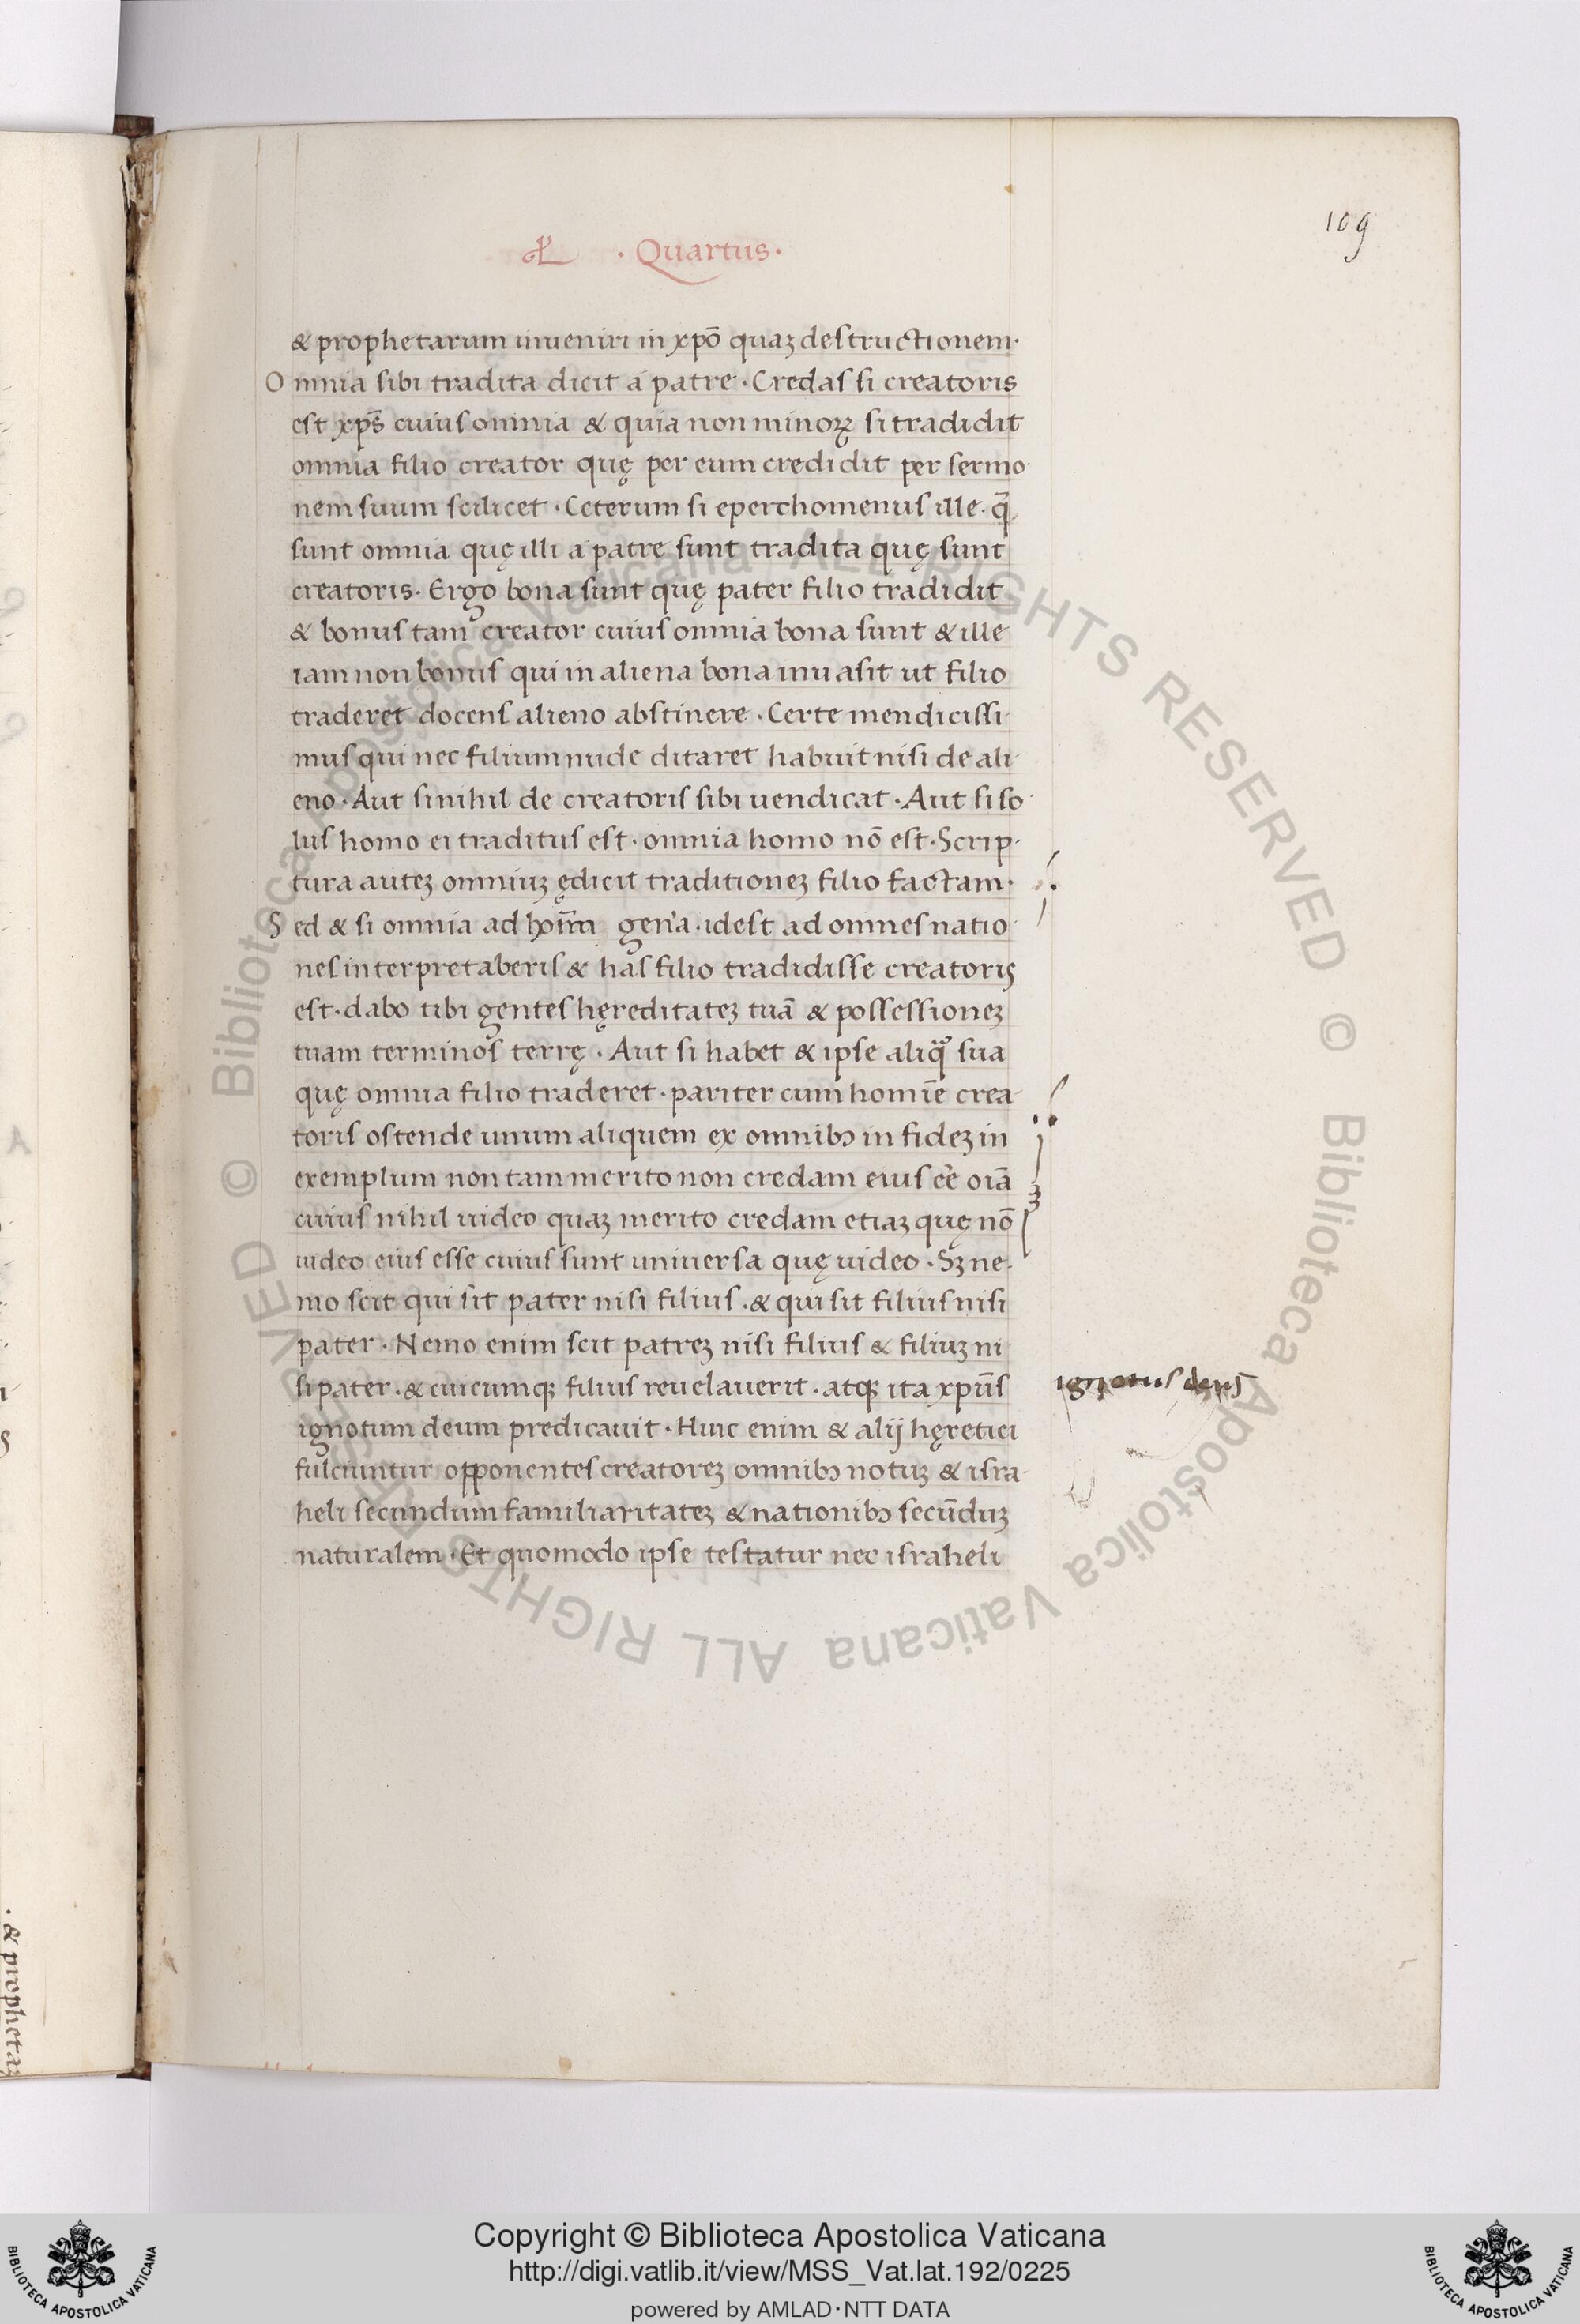 109
· Quartus ·
& prophetarum inueniri in xpō quaꝫ destructionem·
O mnia sibi tradita dicit a patre · Credas si creatoris
est xp̄s cuius omnia & quia non minoꝝ si tradidit
omnia filio creator quę per eum credidit per sermo
nem suum scilicet · Ceterum si eperchomenus ille · q̄
sunt omnia quę illi a patre sunt tradita quę sunt
creatoris · Ergo bona sunt quę pater filio tradidit
& bonus tam creator cuius omnia bona sunt & ille
iam non bonus qui in aliena bona inuasit ut filio
traderet docens alieno abstinere · Certe mendicissi
mus qui nec filium nude ditaret habuit nisi de ali
eno · Aut si nihil de creatoris sibi uendicat · Aut si so
lus homo ei traditus est · omnia homo nō est · Scrip
tura auteꝫ omniuꝫ ędicit traditioneꝫ filio factam·
S ed & si omnia ad hoīm gen'a · idest ad omnes natio
nes interpretaberis & has filio tradidisse creatoris
est · dabo tibi gentes hęreditateꝫ tuā & possessioneꝫ
tuam terminos terrę · Aut si habet & ipse aliq̄ sua
quę omnia filio traderet · pariter cum homīe crea
toris ostende unum aliquem ex omnibꝫ in fideꝫ in
exemplum non tam merito non credam eius eē oīa
cuius nihil uideo quaꝫ merito credam etiaꝫ quę nō
uideo eius esse cuius sunt uniuersa quę uideo · Sꝫ ne
mo scit qui sit pater nisi filius · & qui sit filius nisi
pater · Nemo enim scit patreꝫ nisi filius & filiuꝫ ni
si pater · & cuicumqꝫ filius reuelauerit · atqꝫ ita xpūs
ignotus deus
ignotum deum predicauit · Huic enim & alij hęretici
fulciuntur opponentes creatoreꝫ omnibꝫ notuꝫ & isra
heli secundum familiaritateꝫ & nationibꝫ secūduꝫ
naturalem · Et quomodo ipse testatur nec israheli
· & prophetaꝫ
© Biblioteca Apostolica Vaticana ALL RIGHTS RESERVED © Biblioteca Apostolica Vaticana ALL RIGHTS RESERVED
Copyright © Biblioteca Apostolica Vaticana
http://digi.vatlib.it/view/MSS_Vat.lat.192/0225
powered by AMLAD·NTT DATA
BIBLIOTECA APOSTOLICA VATICANA
BIBLIOTECA APOSTOLICA VATICANA